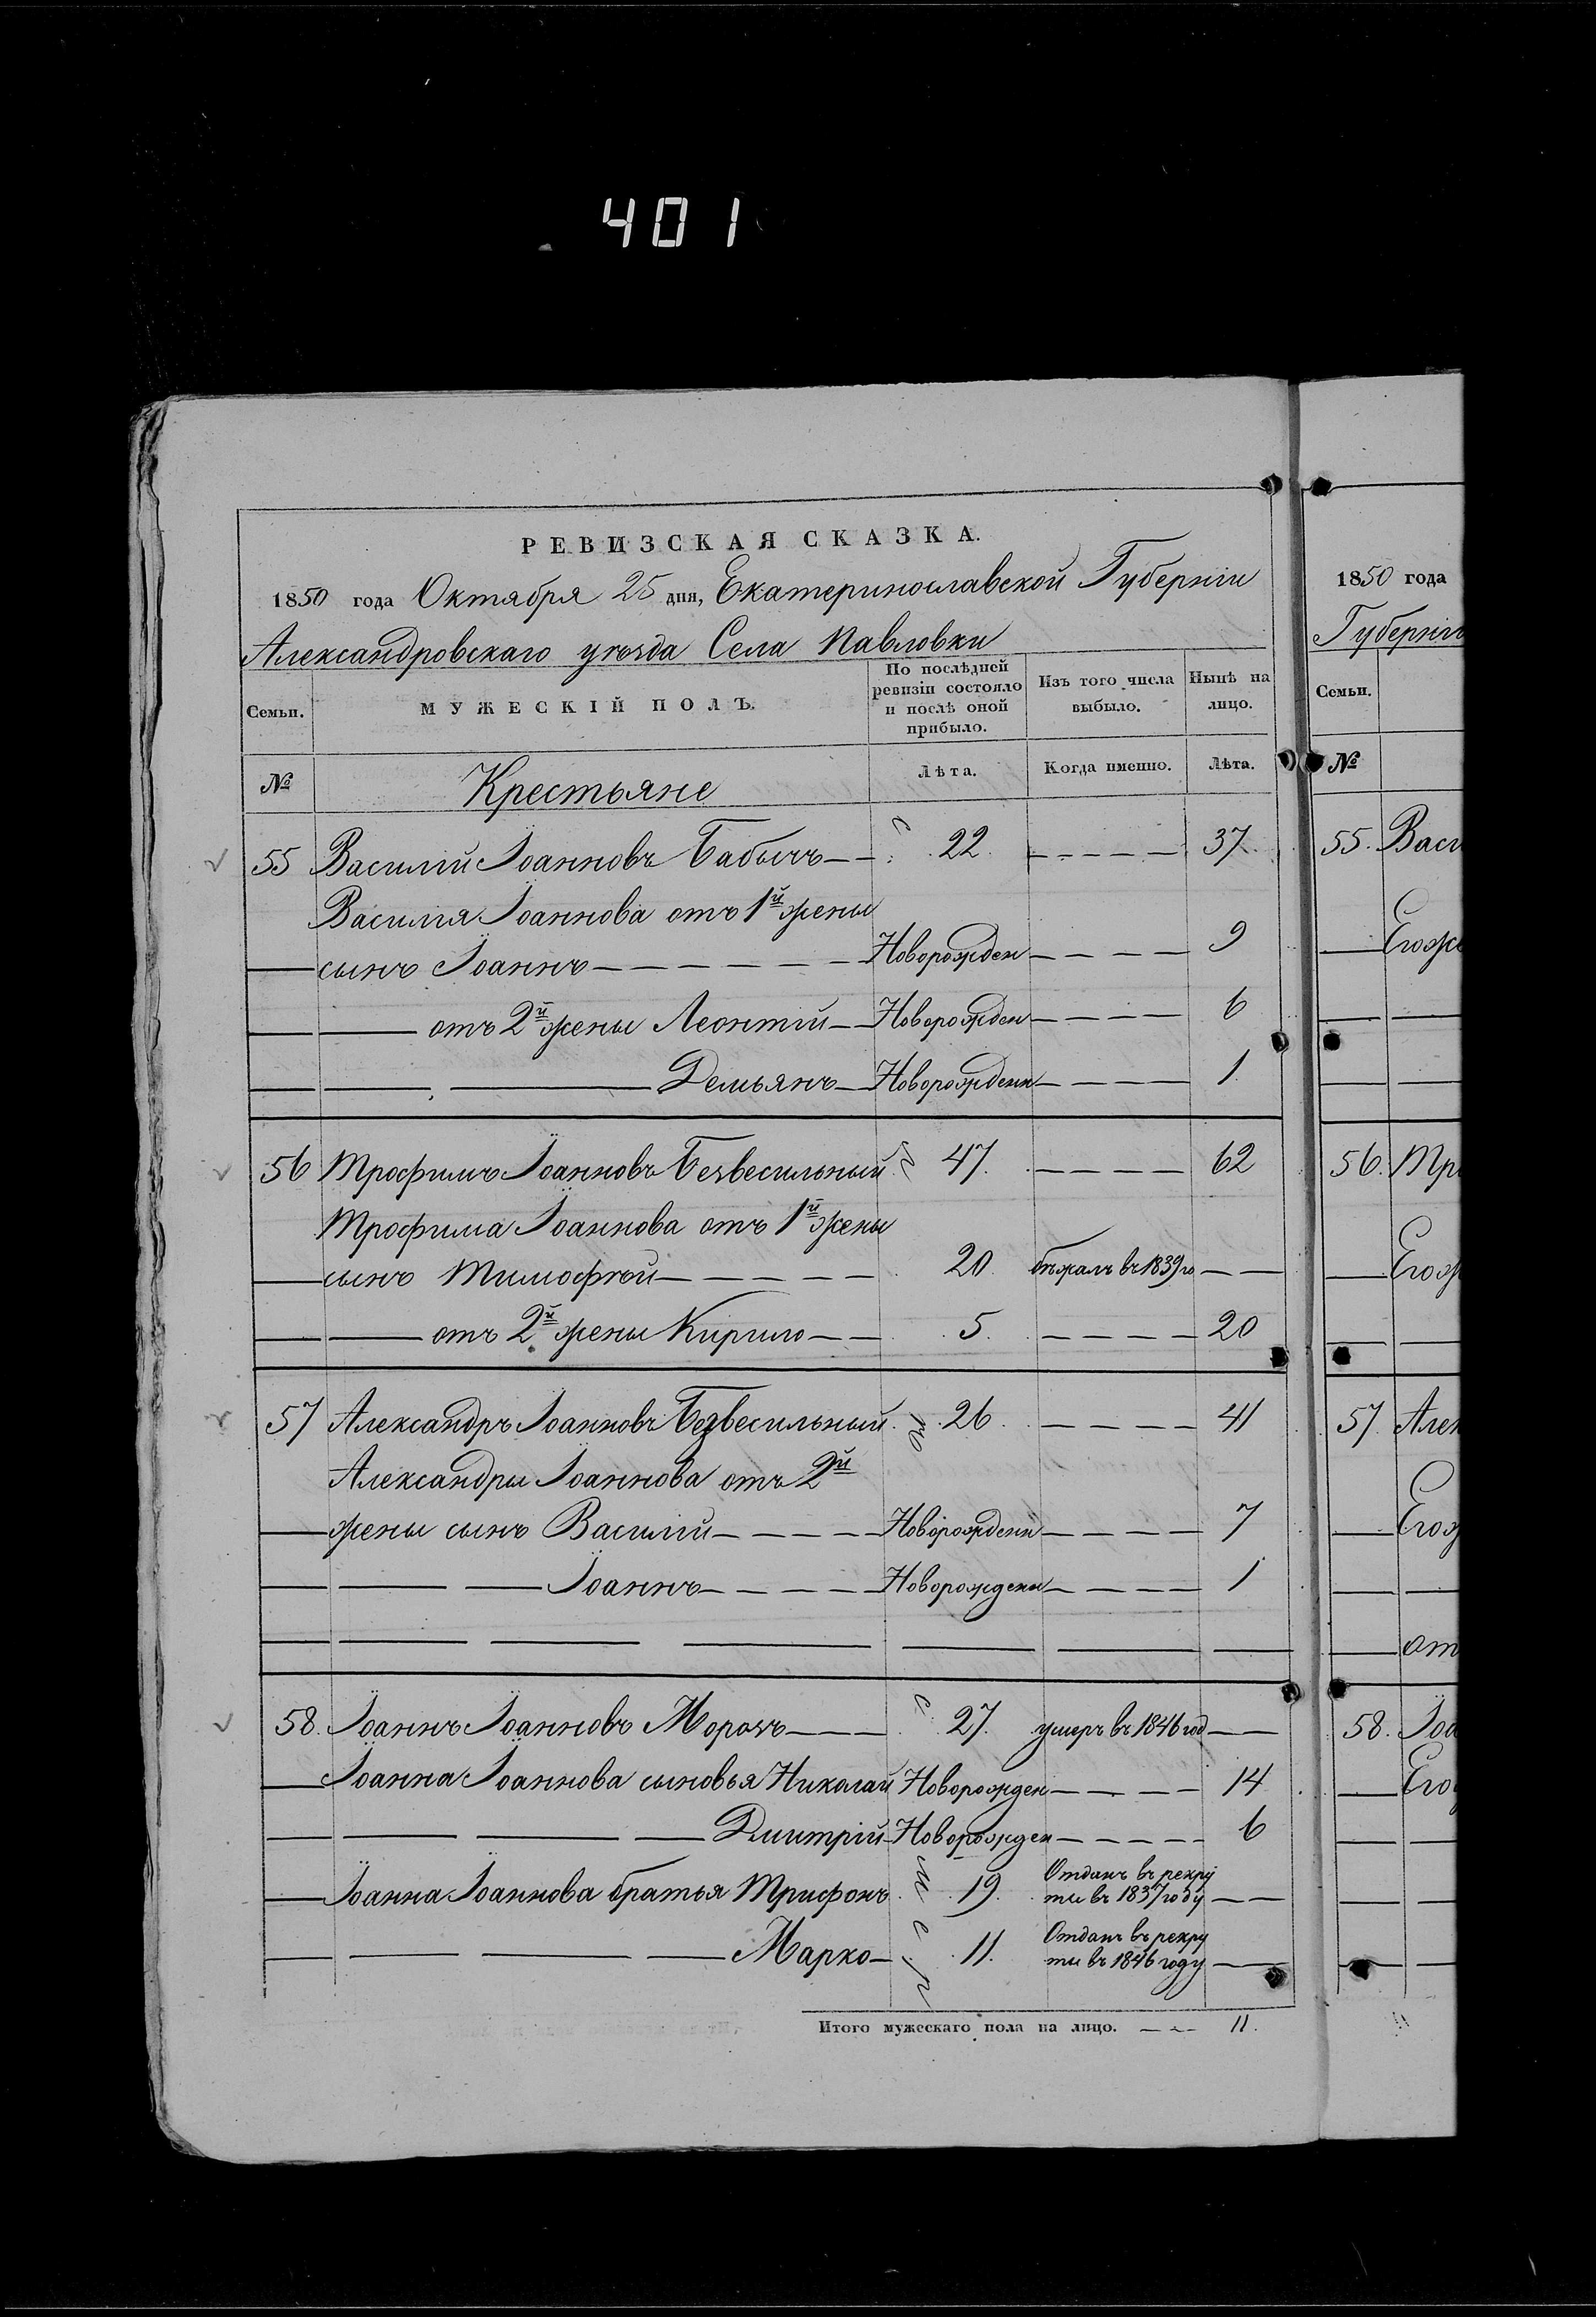 401
РЕВИЗСКАЯ СКАЗКА.
1850 года Октября 25 дня, Екатеринославской Губерніи
Александровскаго уѣзда Села Павловки
Семьи. МУЖЕСКІЙ ПОЛЪ. По послѣдней ревизіи состояло и послѣ оной прибыло. Изъ того числа выбыло. Нынѣ на лицо.
№ Крестьяне Лѣта. Когда именно. Лѣта.
55 Василій Іоанновъ Бабычъ 22. 37.
Василія Іоаннова отъ 1й жены
сынъ Іоаннъ Новорожден 9
отъ 2й жены Леонтій Новорожден 6
Демьянъ Новорожденн 1.
56 Трофимъ Іоанновъ Безвесильный 47. 62
Трофима Іоаннова отъ 1й жены
сынъ Тимофѣй 20 бѣжалъ въ 1839 го
отъ 2й жены Кирило 5. 20
57 Александръ Іоанновъ Безвесильный 26. 41
Александры Іоаннова отъ 2й
жены сынъ Василій Новорожденн 7
Іоаннъ Новорожденн 1
58. Іоаннъ Іоанновъ Морозъ 27. умеръ въ 1846 год
Іоанна Іоаннова сыновья Николай Новорожден 14
Дмитрій Новорожден 6
Іоанна Іоаннова братья Трифонъ 19. Отданъ въ рекру
ты въ 1837 году
Марко 11. Отданъ въ рекру
ты въ 1846 году
Итого мужескаго пола на лицо. 11.
1850 года
Губерніи
Семьи.
№
55. Васи
Его же
56. Тро
Его ж
57. Алек
Его ж
от
58. Іоа
Его